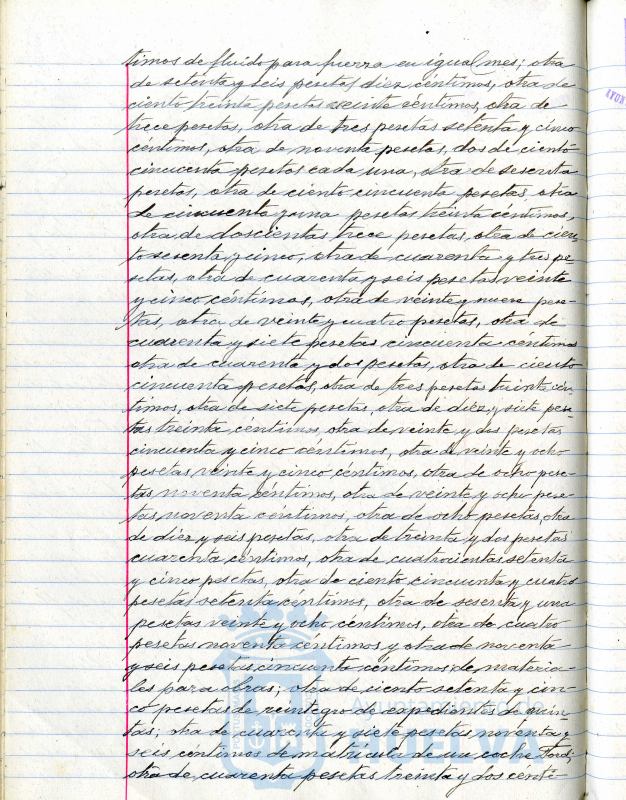 timos de fluido para fuerza en igual mes; otra
de setenta y seis pesetas diez céntimos, otra de
ciento treinta pesetas veinte céntimos, otra de
trece pesetas, otra de tres pesetas setenta y cinco
céntimos, otra de noventa pesetas, dos de ciento
cincuenta pesetas cada una, otra de sesenta
pesetas, otra de ciento cincuenta pesetas, otra
de cincuenta y una pesetas treinta céntimos,
otra de doscientas trece pesetas, otra de cien-
to sesenta y cinco, otra de cuarenta y tres pe-
setas, otra de cuarenta y seis pesetas veinte
y cinco céntimos, otra de veinte y nueve pese-
tas, otra de veinte y cuatro pesetas, otra de
cuarenta y siete pesetas cincuenta centimos
otra de cuarenta y dos pesetas, otra de ciento
cincuenta pesetas, otra de tres pesetas treinta cén-
timos, otra de siete pesetas, otra de diez y siete pese-
tas treinta centimos, otra de veinte y dos pesetas
cincuenta y cinco céntimos, otra de veinte y ocho
pesetas veinte y cinco céntimos, otra de ocho pese-
tas noventa céntimos, otra de veinte y ocho pese-
tas noventa céntimos, otra de ocho pesetas, otra
de diez y seis pesetas, otra de treinta y dos pesetas
cuarenta céntimos, otra de cuatrocientas setenta
y cinco pesetas, otra de ciento cincuenta y cuatro
pesetas setenta céntimos, otra de sesenta y una
pesetas veinte y ocho céntimos, otra de cuatro
pesetas noventa céntimos y otra de noventa
y seis pesetas cincuenta céntimos de materia-
les para obras; otra de ciento setenta y cin-
co pesetas de reintegro de expedientes de quin-
tas; otra de cuarenta y siete pesetas noventa y
seis céntimos de matrícula de un coche Ford;
otra de cuarenta pesetas treinta y dos cénti-
Ayuntamiento de
HUELVA